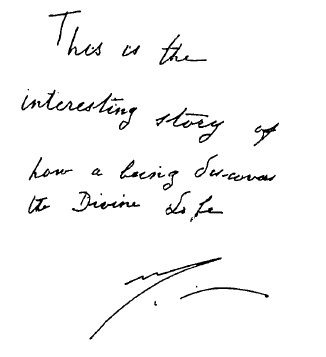 This is the
interesting story of
how a being discovers
the Divine Life